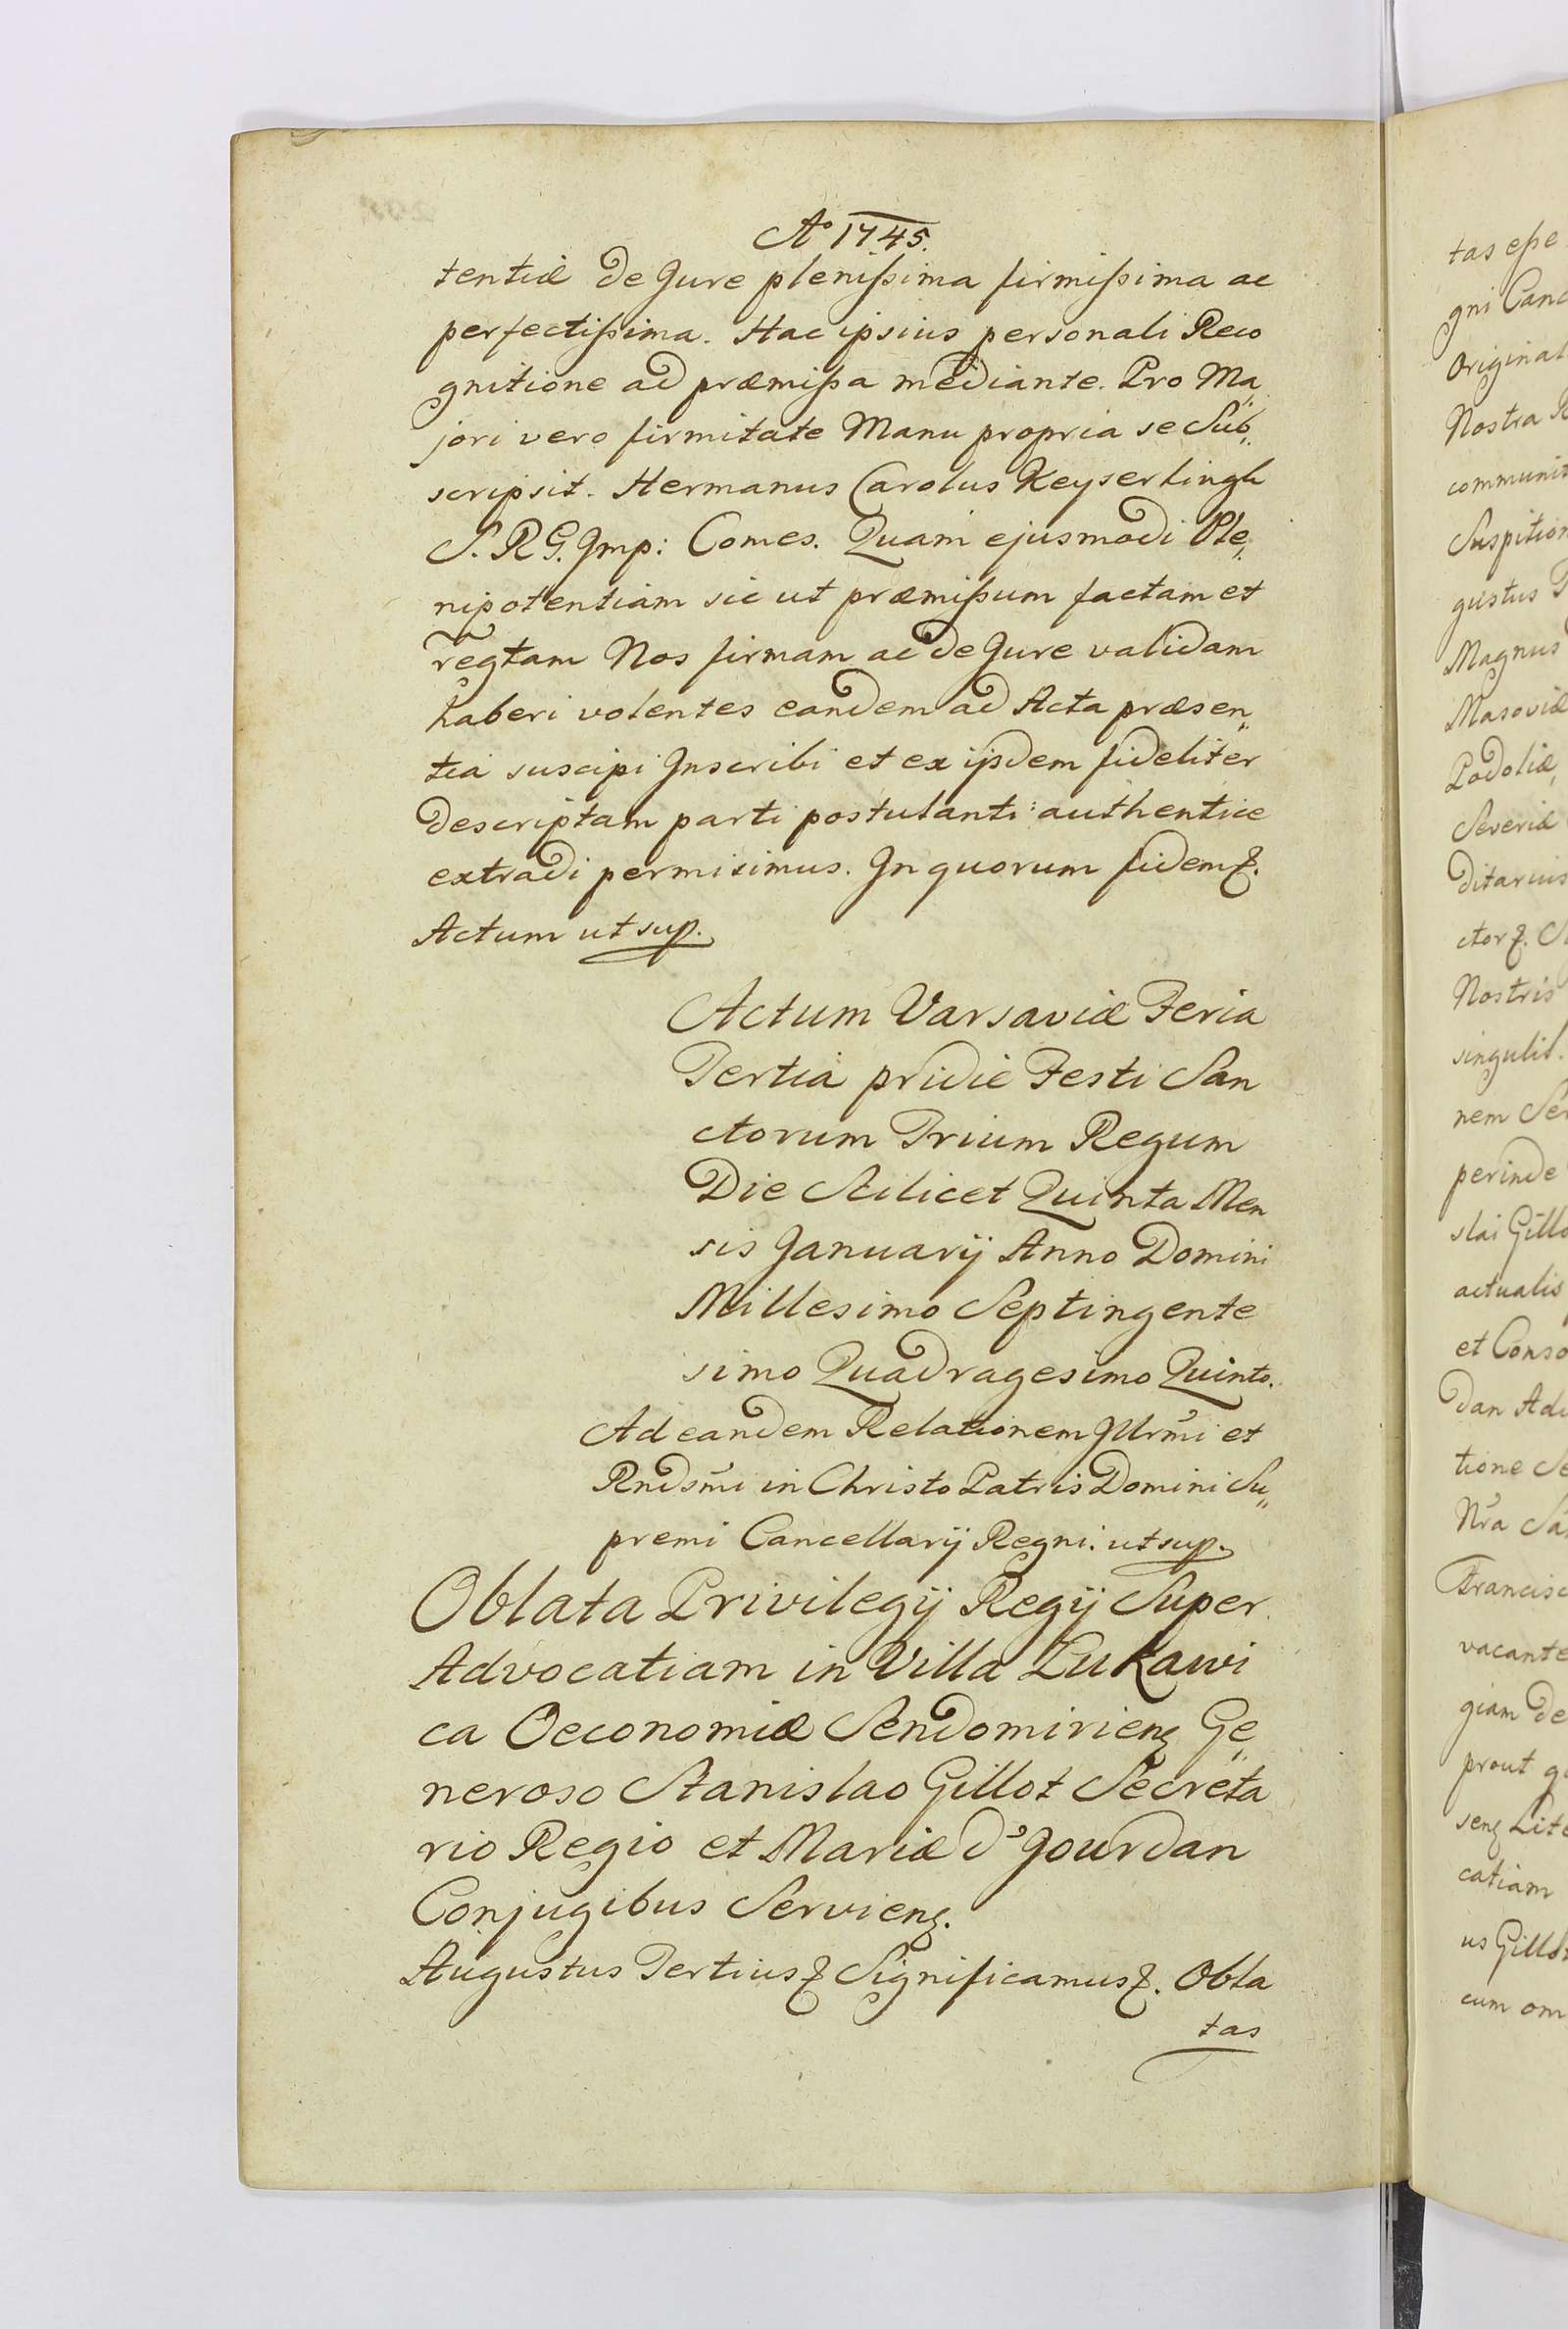 Aº 1745.
tentiæ de Jure plenißima firmißima ac
perfectißima. Hac ipsius personali Reco
gnitione ad præmißa mediante. Pro Ma„
jori vero firmitate Manu propria se Sub„
scripsit. Hermanus Carolus Keyserlingk
S. R. J. Imp: Comes. Quam ejusmodi Ple„
nipotentiam sic ut præmißum factam et
regtam Nos firmam ac de Jure validam
haberi volentes eandem ad Acta præsen„
tia suscipi Inscribi et ex ijsdem fideliter
descriptam parti postulanti authentice
extradi permisimus. In quorum fidem &.
Actum ut sup.
Actum Varsaviæ Feria
Tertia pridie Festi San
ctorum Trium Regum
Die Scilicet Quinta Men
sis Januarij Anno Domini
Millesimo Septingente
simo Quadragesimo Quinto.
Ad eandem Relationem Illrmi et
Rndsmi in Christo Patris Domini Su„
premi Cancellarij Regni. ut sup.
Oblata Privilegij Regij Super
Advocatiam in Villa Lukawi
ca Oeconomiæ Sendomirienz Ge„
neroso Stanislao Gillot Secreta
rio Regio et Mariæ d'Jourdan
Conjugibus Servienz.
Augustus Tertius & Significamus &. Obla
tas
tas eße
gni Canc
Original
Nostra
communit
Suspition
gustus
Magnus
Masoviæ
Podoliæ,
Severiæ
ditarius
ctor &.
Nostris
singulis.
nem
perinde
slai Gillo
actualis
et Conso
dan Adv
tione
Nra
Francisc
vacante
giam de
prout
senz Lite
catiam
us Gillot
cum om